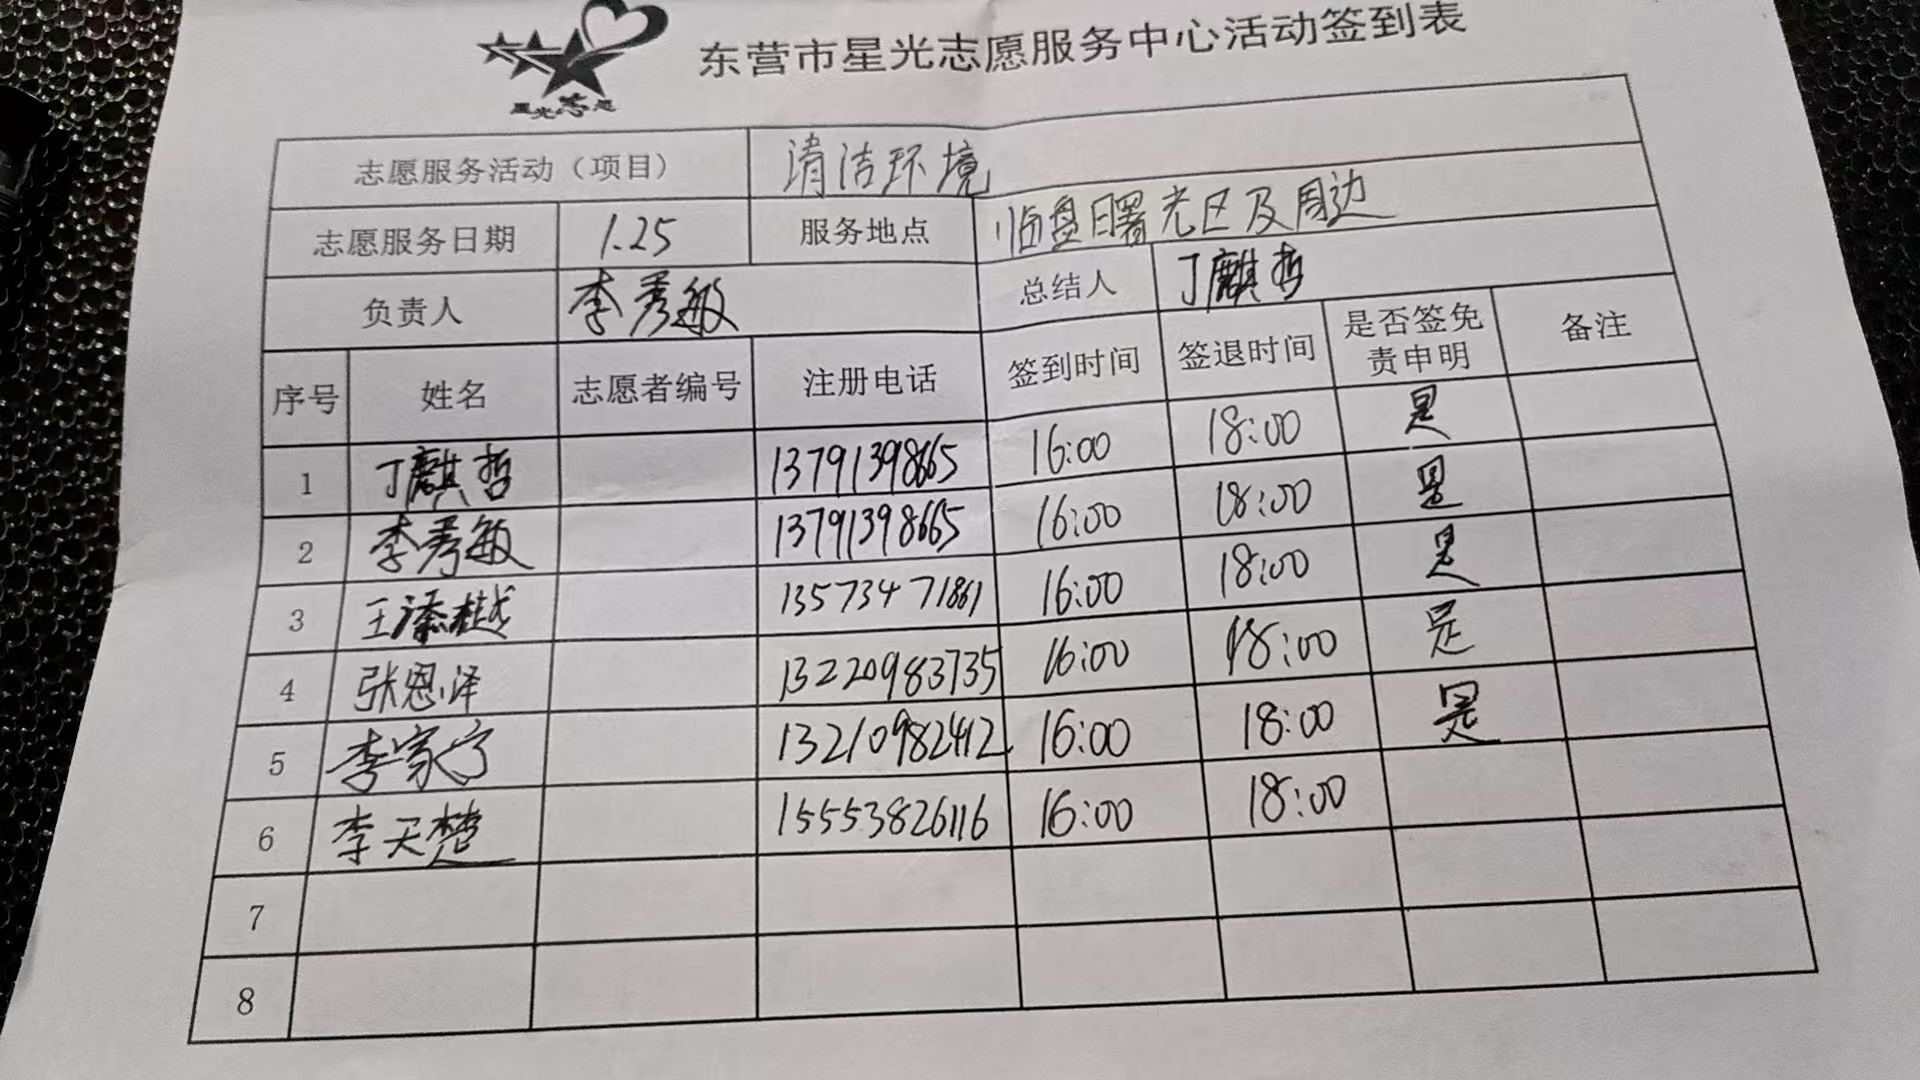 东营市星光志愿服务中心活动签到表
星光志愿
志愿服务活动（项目） 清洁环境
志愿服务日期 1.25 服务地点 临盘曙光区及周边
负责人 李秀敏 总结人 丁麒哲
序号 姓名 志愿者编号 注册电话 签到时间 签退时间 是否签免责申明 备注
1 丁麒哲 13791398665 16:00 18:00 是
2 李秀敏 13791398665 16:00 18:00 是
3 王添越 13573471861 16:00 18:00 是
4 张恩泽 13220983735 16:00 18:00 是
5 李家宁 13210982412 16:00 18:00 是
6 李天楚 15553826116 16:00 18:00
7
8